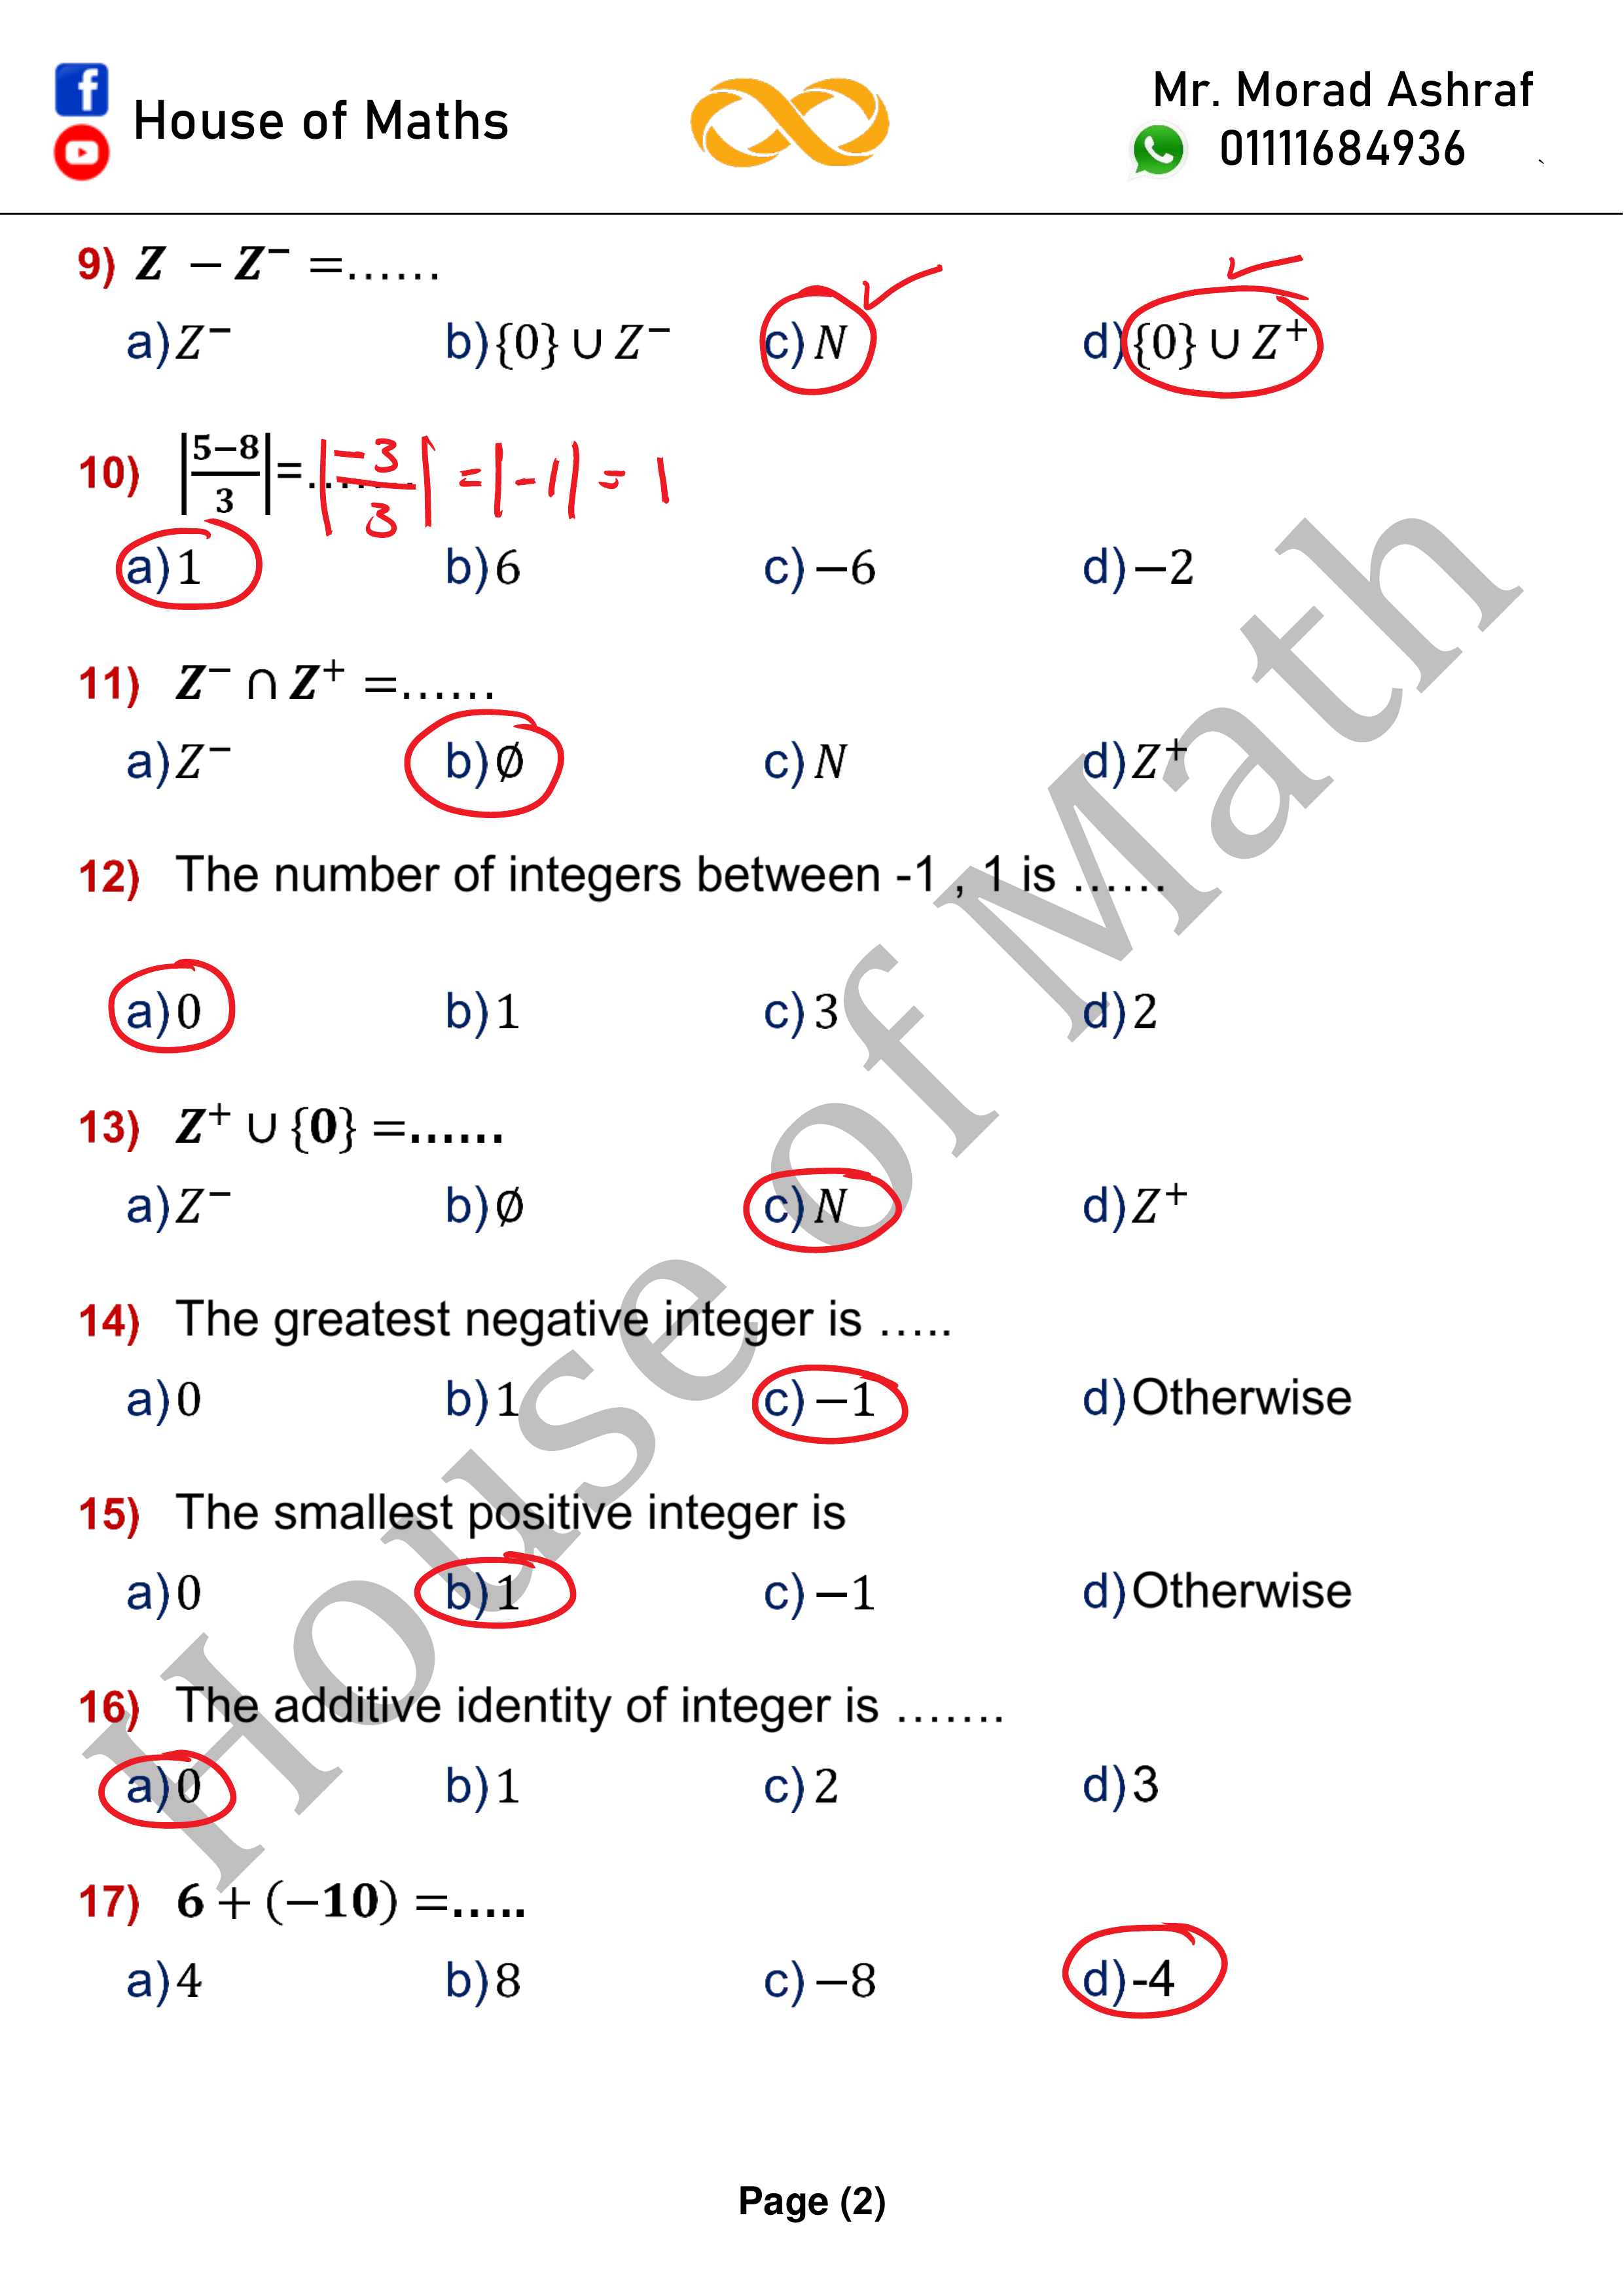 House of Maths
Mr. Morad Ashraf
01111684936
9) Z − Z⁻ =……
a) Z⁻ b) {0} ∪ Z⁻ c) N d) {0} ∪ Z⁺
10) |5−8/3| =....... |−3/3| = |−1| = 1
a) 1 b) 6 c) −6 d) −2
11) Z⁻ ∩ Z⁺ =……
a) Z⁻ b) ∅ c) N d) Z⁺
12) The number of integers between -1 , 1 is ……
a) 0 b) 1 c) 3 d) 2
13) Z⁺ ∪ {0} =……
a) Z⁻ b) ∅ c) N d) Z⁺
14) The greatest negative integer is …..
a) 0 b) 1 c) −1 d) Otherwise
15) The smallest positive integer is
a) 0 b) 1 c) −1 d) Otherwise
16) The additive identity of integer is …….
a) 0 b) 1 c) 2 d) 3
17) 6 + (−10) =…..
a) 4 b) 8 c) −8 d) -4
House of Math
Page (2)